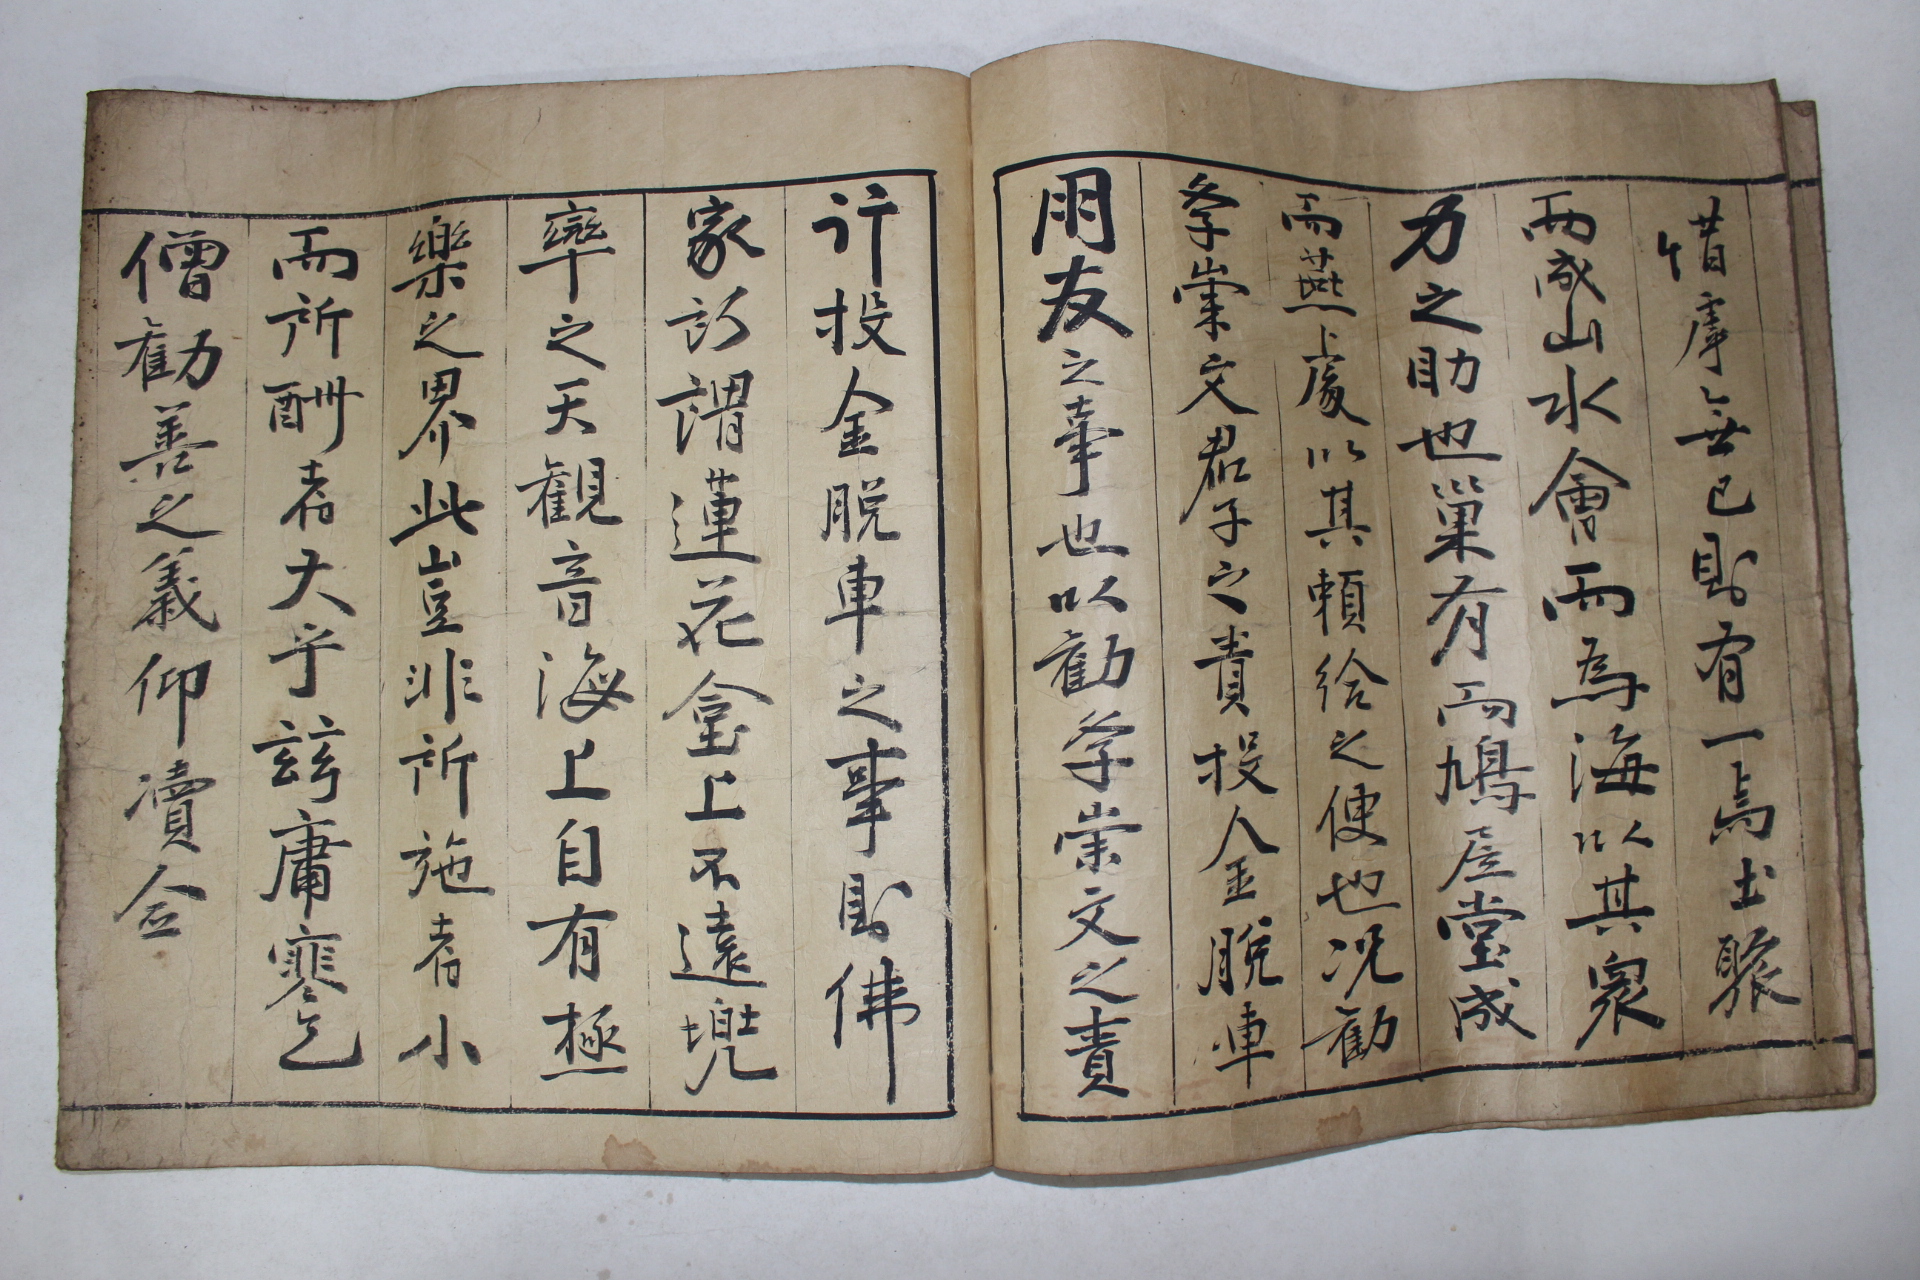 惜虖無已則有一焉土聚
而成山水會而為海以其衆
力之助也巢有而鳩居堂成
而燕處以其賴給之使也况勸
孝崇文君子之責投金脫車
朋友之事也以勸孝崇文之責
計投金脫車之事則佛
家所謂蓮花臺上不遠兜
率之天觀音海上自有極
樂之界此豈非所施者小
而所酬者大乎玆庸寒乞
僧勸善之義仰瀆僉